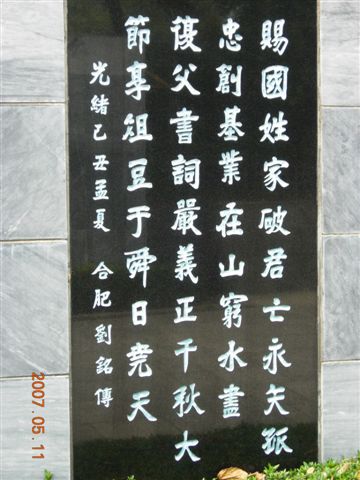 賜國姓家破君亡永矢孤
忠創基業在山窮水盡
復父書詞嚴義正千秋大
節享俎豆于舜日堯天
光緒乙丑孟夏 合肥劉銘傳
2007.05.11